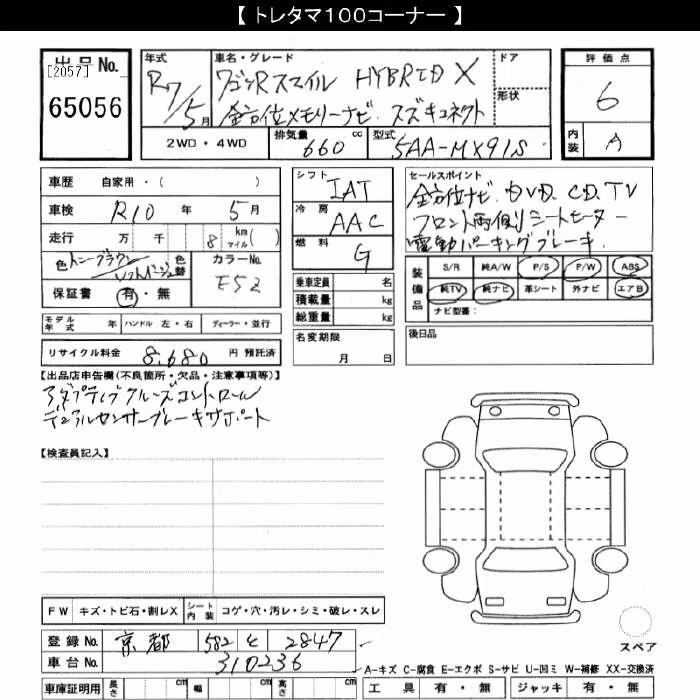 【 トレタマ100コーナー 】
出品No.
[2057]
65056
年式
R7/5月
車名・グレード
ワゴンRスマイル HYBRID X
全方位メモリーナビ. スズキコネクト
ドア
形状
評価点
6
内装
A
2WD・4WD
排気量 660 cc
型式 5AA-MX91S
車歴 自家用・( )
車検 R10 年 5月
走行 万 千 8 km マイル( )
色 トーニーブラウン ソフトベージュ 色替
カラーNo. E5Z
保証書 有・無
モデル年式 年 ハンドル 左・右 ディーラー・並行
リサイクル料金 8,680 円 預託済
シフト IAT
冷房 AAC
燃料 G
乗車定員 名
積載量 kg
総重量 kg
名変期限
月 日
セールスポイント
全方位ナビ. DVD. CD. TV
フロント両側シートヒーター
電動パーキングブレーキ.
装備品
S/R 純A/W P/S P/W ABS
純TV 純ナビ 革シート 外ナビ エアB
ナビ型番:
後日品
【出品店申告欄(不良箇所・欠品・注意事項等)】
アダプティブクルーズコントロール
デュアルセンサーブレーキサポート
【検査員記入】
FW キズ・トビ石・割レX シート内装 コゲ・穴・汚レ・シミ・破レ・スレ
登録No. 京都 582 を 2847
車台No. 310236
車庫証明用 長さ cm 幅 cm 高さ cm
スペア
A-キズ C-腐食 E-エクボ S-サビ U-凹ミ W-補修 XX-交換済
工具 有・無 ジャッキ 有・無